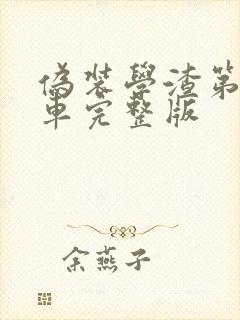 偽裝學渣第
車完整版
余燕子